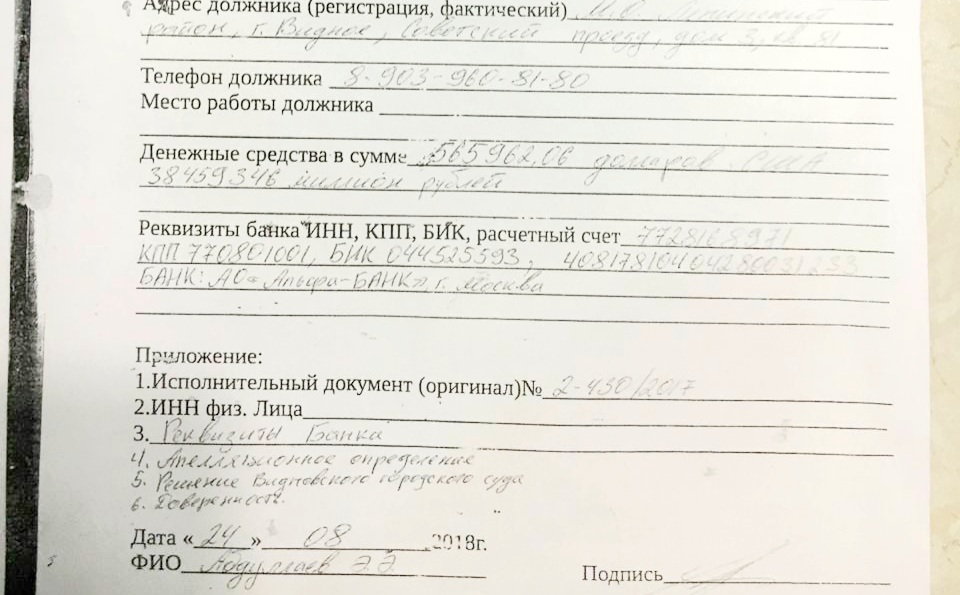 Адрес должника (регистрация, фактический) М.О. Ленинский
район, г. Видное, Советский проезд, дом 3, кв
Телефон должника 8-903-960-81-80
Место работы должника
Денежные средства в сумме 565962,06 долларов США
38459346 миллион рублей
Реквизиты банка ИНН, КПП, БИК, расчетный счет 7728168971
КПП 770801001, БИК 044525593, 40817810404280031233
БАНК: АО «Альфа-БАНК», г. Москва
Приложение:
1.Исполнительный документ (оригинал)№ 2-430/2017
2.ИНН физ. Лица
3. Реквизиты Банка
4. Апелляционное определение
5. Решение Видновского городского суда
6. Доверенность.
Дата « 24 » 08 2018г.
ФИО Абдуллаев Э.Э.
Подпись